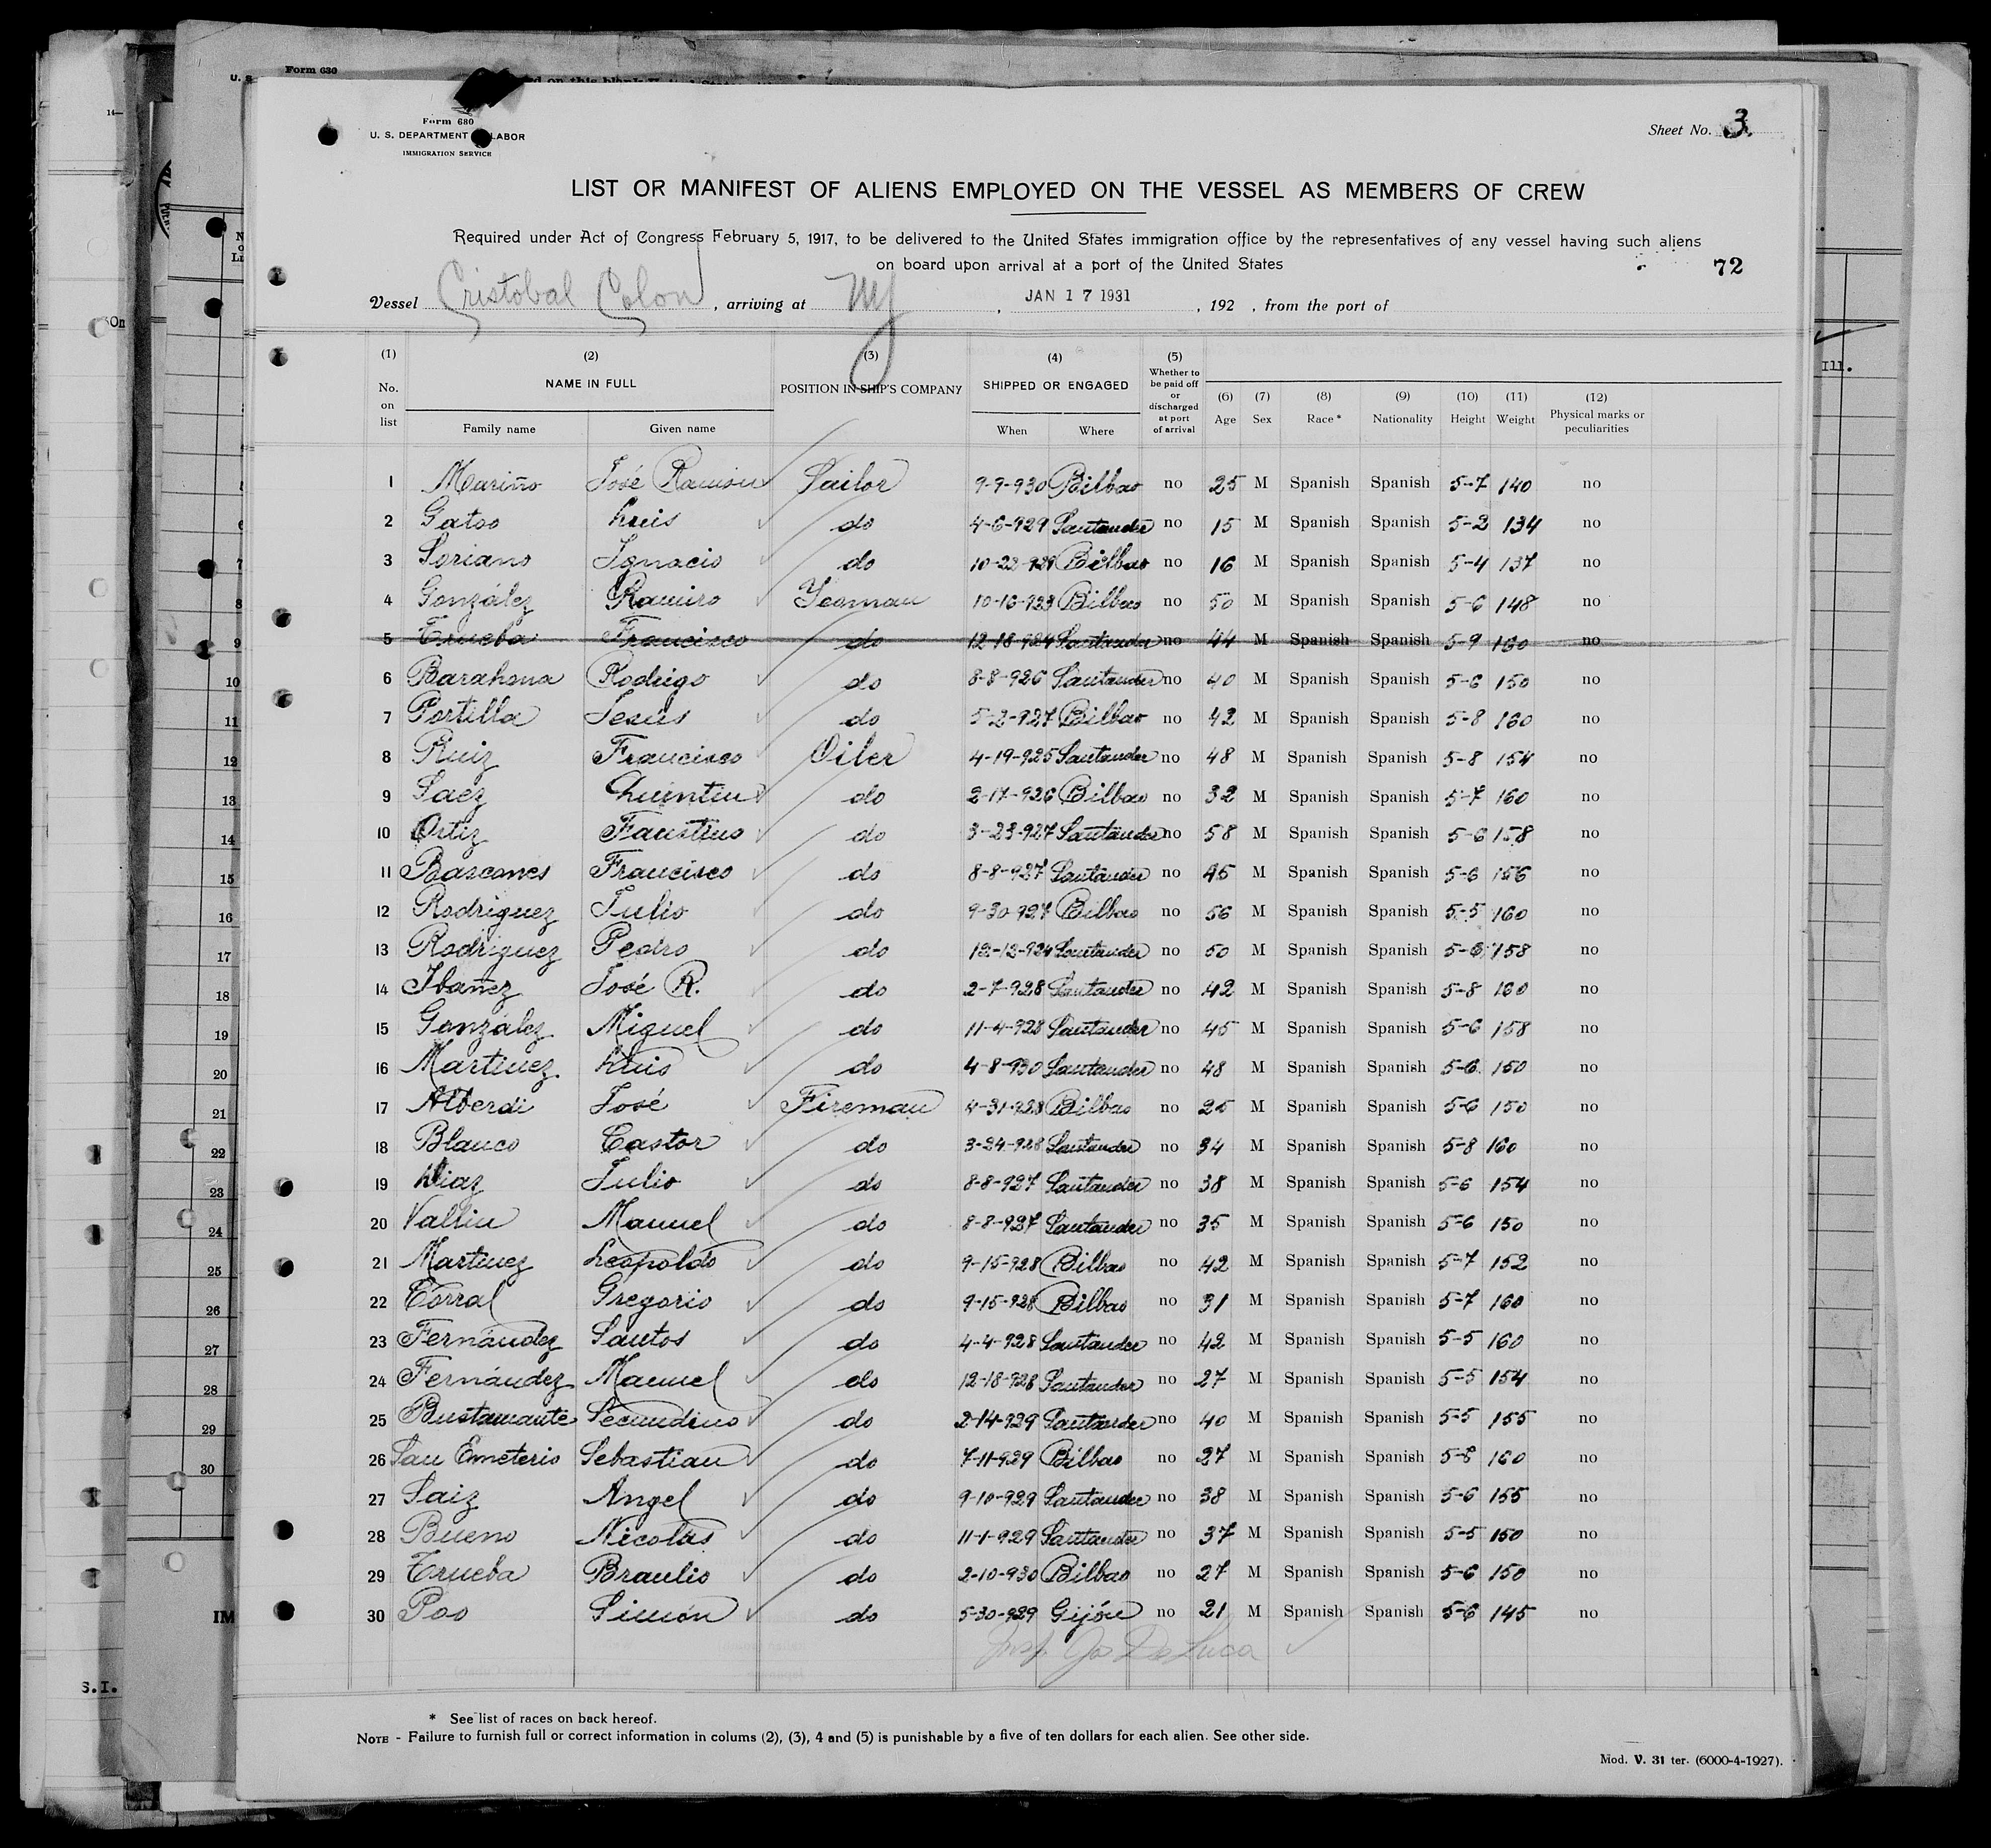 Form 630
U. S.
Form 680
U. S. DEPARTMENT LABOR
IMMIGRATION SERVICE
Sheet No. 3.
LIST OR MANIFEST OF ALIENS EMPLOYED ON THE VESSEL AS MEMBERS OF CREW
Required under Act of Congress February 5, 1917, to be delivered to the United States immigration office by the representatives of any vessel having such aliens
on board upon arrival at a port of the United States
72
Vessel Cristobal Colon, arriving at NY, JAN 17 1931, 192 , from the port of
(1) No. on list (2) NAME IN FULL Family name Given name (3) POSITION IN SHIP'S COMPANY (4) SHIPPED OR ENGAGED When Where (5) Whether to be paid off or discharged at port of arrival (6) Age (7) Sex (8) Race * (9) Nationality (10) Height (11) Weight (12) Physical marks or peculiarities
1 Mariño José Ramón Sailor 9-9-930 Bilbao no 25 M Spanish Spanish 5-7 140 no
2 Gatoo Luis do 4-6-929 Santander no 15 M Spanish Spanish 5-2 134 no
3 Soriano Ignacio do 10-22-929 Bilbao no 16 M Spanish Spanish 5-4 137 no
4 González Ramiro Yeoman 10-16-923 Bilbao no 50 M Spanish Spanish 5-6 148 no
5 Trueba Francisco do 12-18-924 Santander no 44 M Spanish Spanish 5-9 160 no
6 Barahona Rodrigo do 8-8-926 Santander no 40 M Spanish Spanish 5-6 150 no
7 Portilla Jesús do 5-2-927 Bilbao no 42 M Spanish Spanish 5-8 160 no
8 Ruiz Francisco Oiler 4-19-925 Santander no 48 M Spanish Spanish 5-8 154 no
9 Saez Quintin do 2-17-926 Bilbao no 32 M Spanish Spanish 5-7 160 no
10 Ortiz Faustino do 3-23-927 Santander no 58 M Spanish Spanish 5-6 158 no
11 Bascones Francisco do 8-8-927 Santander no 45 M Spanish Spanish 5-6 156 no
12 Rodriguez Julio do 9-30-927 Bilbao no 56 M Spanish Spanish 5-5 160 no
13 Rodriguez Pedro do 12-12-924 Santander no 50 M Spanish Spanish 5-6 158 no
14 Ibañez José R. do 2-7-928 Santander no 42 M Spanish Spanish 5-8 160 no
15 González Miguel do 11-4-928 Santander no 45 M Spanish Spanish 5-6 158 no
16 Martinez Luis do 4-8-930 Santander no 48 M Spanish Spanish 5-6 150 no
17 Alberdi José Fireman 4-31-928 Bilbao no 25 M Spanish Spanish 5-6 150 no
18 Blanco Castor do 3-24-928 Santander no 34 M Spanish Spanish 5-8 160 no
19 Diaz Julio do 8-8-927 Santander no 38 M Spanish Spanish 5-6 154 no
20 Vallin Manuel do 8-8-927 Santander no 35 M Spanish Spanish 5-6 150 no
21 Martinez Leopoldo do 9-15-928 Bilbao no 42 M Spanish Spanish 5-7 152 no
22 Corral Gregorio do 9-15-928 Bilbao no 31 M Spanish Spanish 5-7 160 no
23 Fernández Santos do 4-4-928 Santander no 42 M Spanish Spanish 5-5 160 no
24 Fernández Manuel do 12-18-928 Santander no 27 M Spanish Spanish 5-5 154 no
25 Bustamante Secundino do 2-14-929 Santander no 40 M Spanish Spanish 5-5 155 no
26 San Emeterio Sebastian do 7-11-929 Bilbao no 27 M Spanish Spanish 5-8 160 no
27 Saiz Angel do 9-10-929 Santander no 38 M Spanish Spanish 5-6 155 no
28 Bueno Nicolás do 11-1-929 Santander no 37 M Spanish Spanish 5-5 150 no
29 Trueba Braulio do 2-10-930 Bilbao no 27 M Spanish Spanish 5-6 150 no
30 Poo Simón do 5-30-929 Gijón no 21 M Spanish Spanish 5-6 145 no
Insp. Jos De Luca
* See list of races on back hereof.
NOTE - Failure to furnish full or correct information in colums (2), (3), 4 and (5) is punishable by a five of ten dollars for each alien. See other side.
Mod. V. 31 ter. (6000-4-1927).
S.I.
IM
Ill.